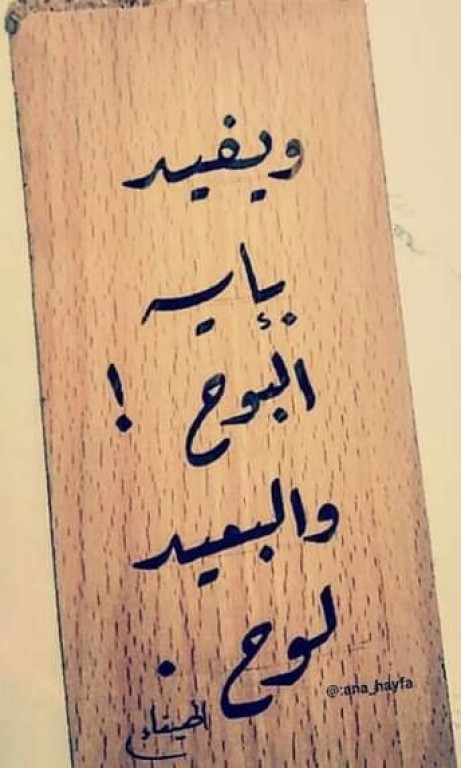 ويفيد
بإيه
البوح !
والبعيد
لوح .
@:ana_hayfa
الهيفاء